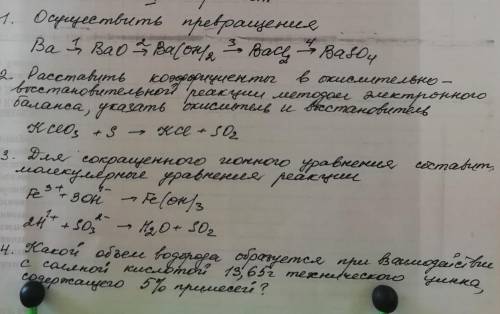 1. Осуществить превращения
Ba 1→ BaO 2→ Ba(OH)2 3→ BaCl2 4→ BaSO4
2. Расставить коэффициенты в окислительно-
восстановительной реакции методом электронного
баланса, указать окислитель и восстановитель
KClO3 + S → KCl + SO2
3. Для сокращенного ионного уравнения составить
молекулярные уравнения реакции
Fe3+ + 3OH- → Fe(OH)3
2H+ + SO3 2- → H2O + SO2
4. Какой объем водорода образуется при взаимодействии
с соляной кислотой 13,65г технического цинка,
содержащего 5% примесей?